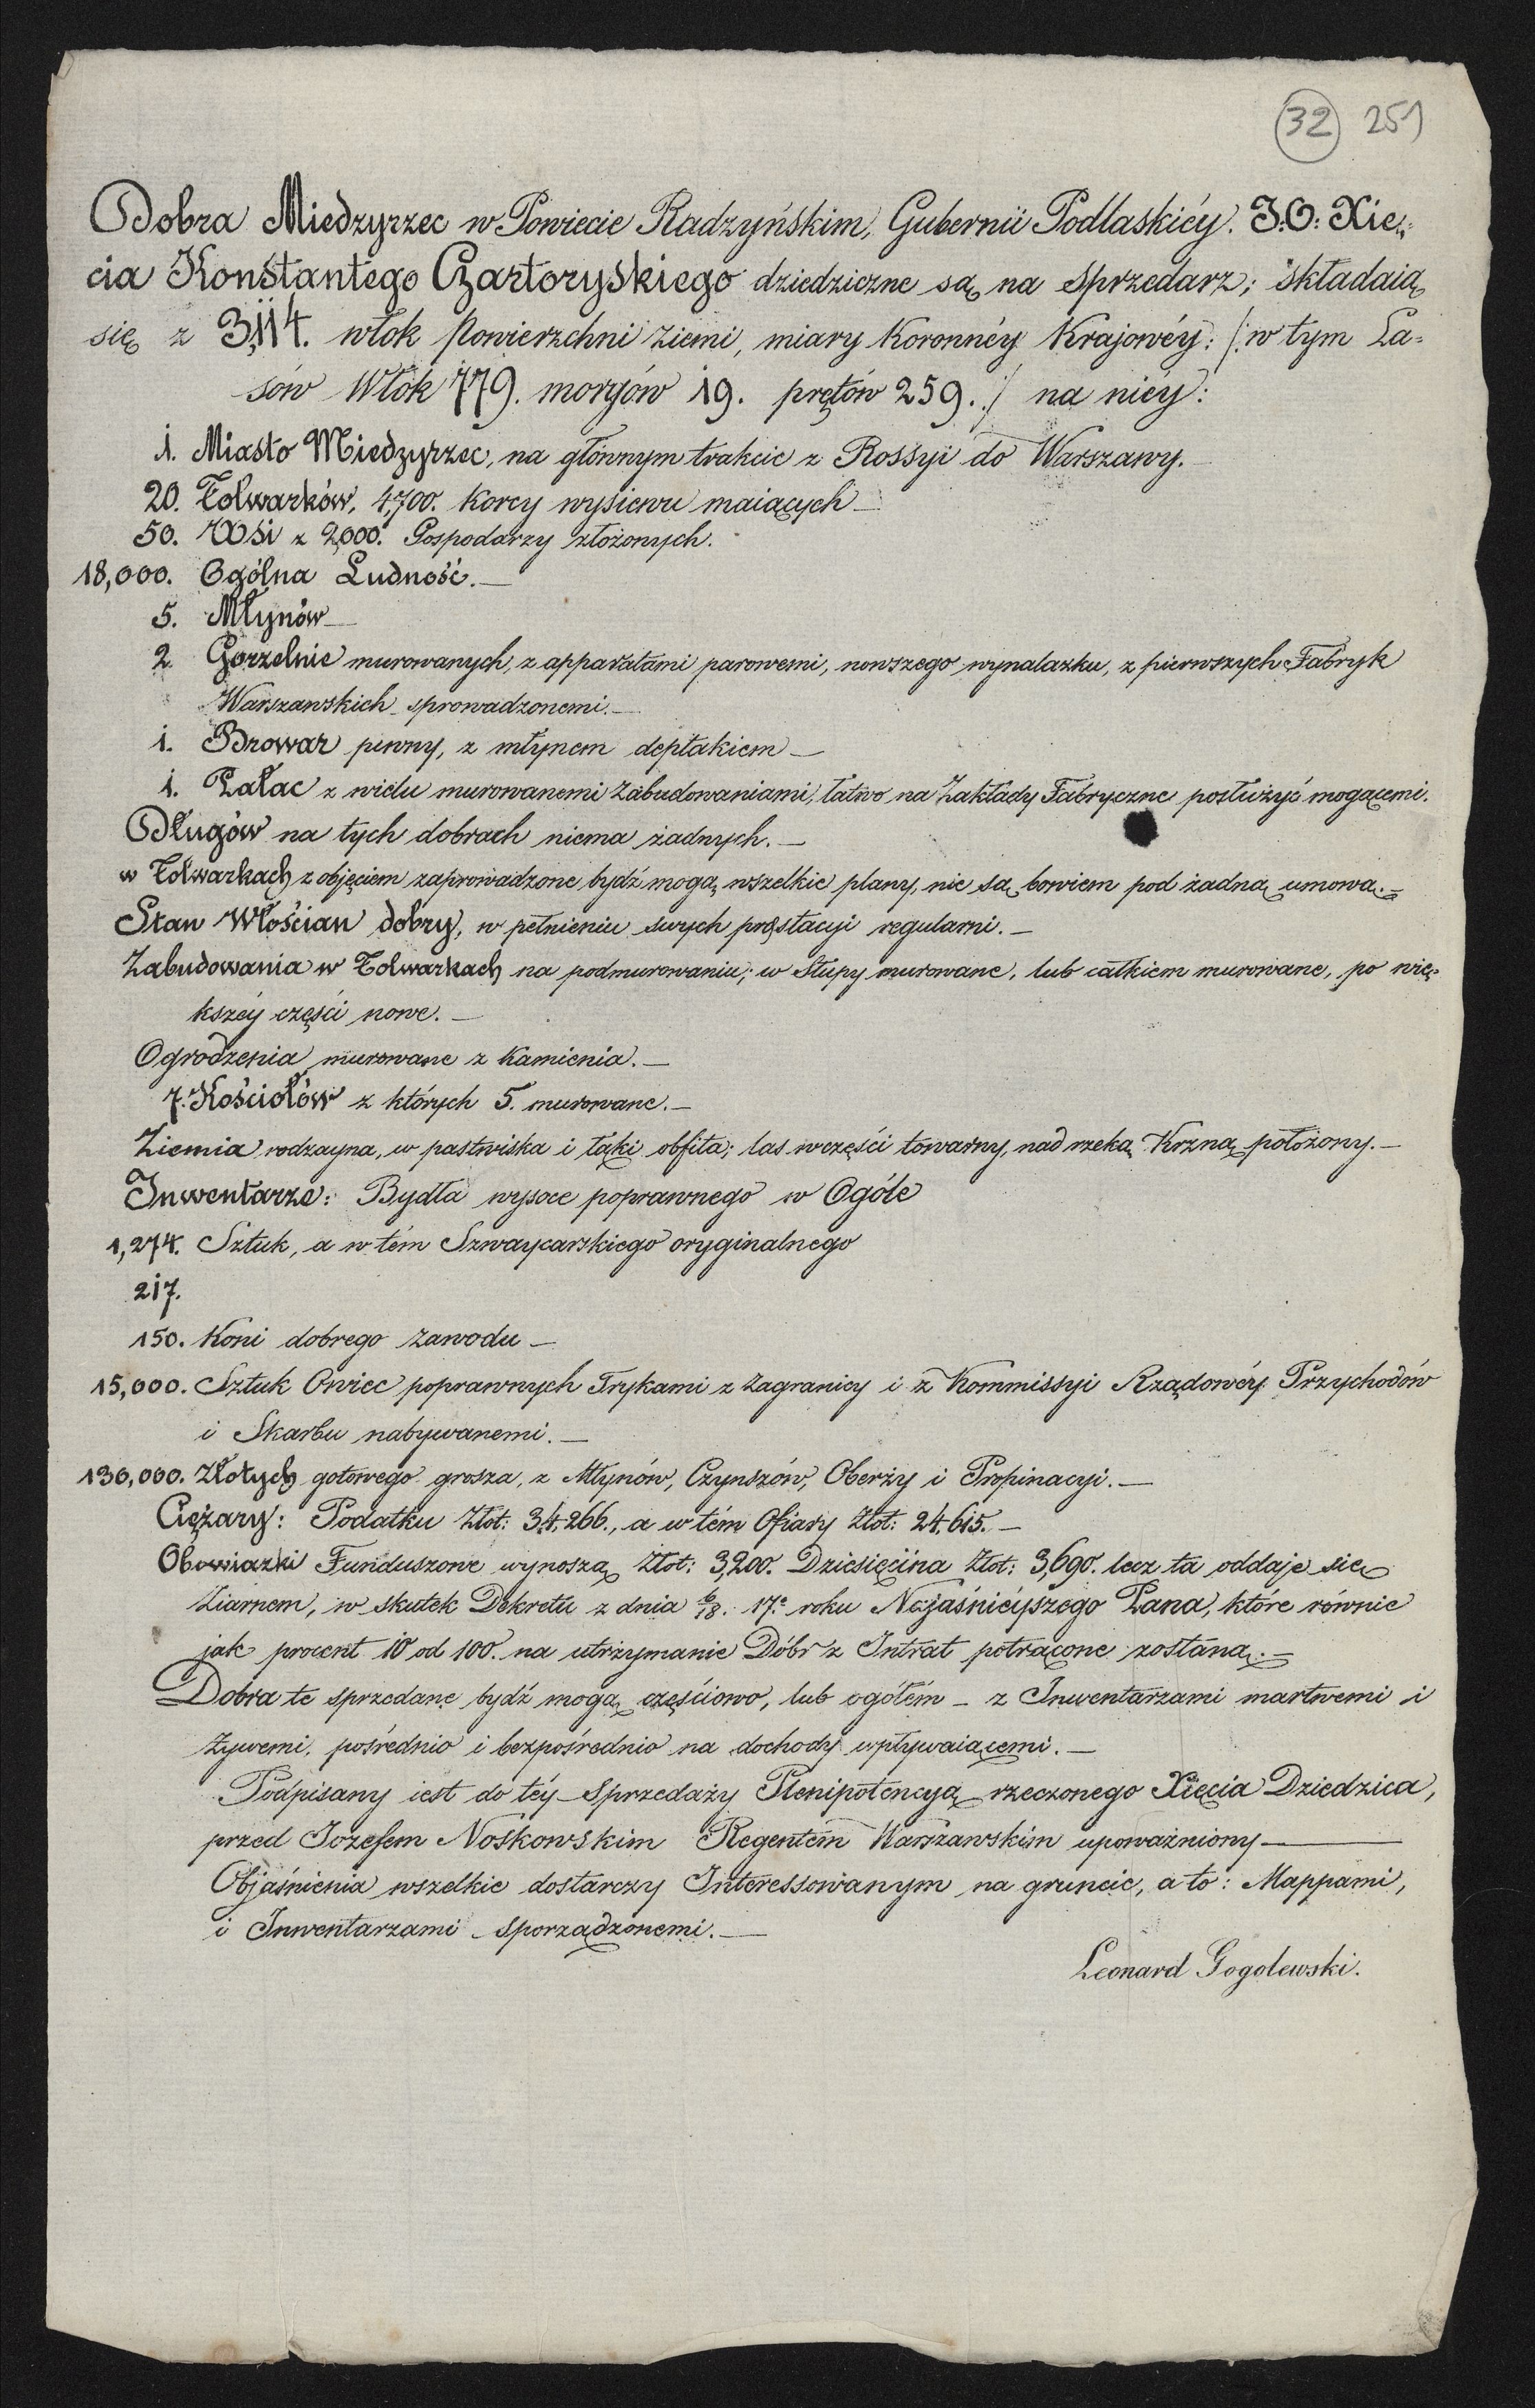 32 251
Dobra Miedzyrzec w Powiecie Radzyńskim, Gubernii Podlaskiéy. J.O: Xię-
cia Konstantego Czartoryskiego dziedziczne są na sprzedarz; składaią
się z 3,114. włok powierzchni ziemi, miary Koronnéy Krajowéy: /: w tym La-
sów Włók 779. morgów 19. prętów 259. :/ na niéy:
1. Miasto Miedzyrzec, na głównym trakcie z Rossyi do Warszawy. —
20. Folwarków, 4,700. Korcy wysiewu maiących —
50. Wsi z 2,000. Gospodarzy złożonych.
18,000. Ogólna Ludność. —
5. Młynów —
2. Gorzelnie murowanych, z apparatami parowemi, nowszego wynalazku, z pierwszych Fabryk
Warszawskich sprowadzonemi. —
1. Browar piwny, z młynem deptakiem —
1. Pałac z wielu murowanemi zabudowaniami, łatwo na Zakłady Fabryczne posłużyć mogącemi.
Długów na tych dobrach niema żadnych. —
w Folwarkach z objęciem zaprowadzone bydź mogą wszelkie plany, nie są bowiem pod żadną umową. —
Stan Włościan dobry, w pełnieniu swych prestacyi regularni. —
Zabudowania w Folwarkach na podmurowaniu; w słupy murowane, lub całkiem murowane, po wię-
kszéy części nowe. —
Ogrodzenia murowane z Kamienia. —
7. Kościołów z których 5. murowane. —
Ziemia rodzayna, w pastwiska i łąki obfita; las w części towarny, nad rzeką Krzną położony. —
Inwentarze: Bydła wysoce poprawnego w Ogóle
1,274. Sztuk, a w tém Szwaycarskiego oryginalnego
217.
150. Koni dobrego zawodu —
15,000. Sztuk Owiec poprawnych Trykami z Zagranicy i z Kommissyi Rządowéy Przychodów
i Skarbu nabywanemi. —
130,000. Złotych gotowego grosza, z Młynów, Czynszów, Oberży i Propinacyi. —
Ciężary: Podatku Złot: 34,266., a w tém Ofiary Złot: 24,615. —
Obowiązki Funduszowe wynoszą Złot: 3,200. Dziesięciina Złot: 3,690. lecz ta oddaje się
Ziarnem, w skutek Dekretu z dnia 6/18. 17.e roku Najaśniéyszego Pana, które równie
jak procent 10 od 100. na utrzymanie Dóbr z Intrat potrącone zostaną. —
Dobra te sprzedane bydź mogą częściowo, lub ogółém — z Inwentarzami martwemi i
żywemi, pośrednio i bezpośrednio na dochody wpływaiącemi. —
Podpisany iest do téy Sprzedaży Plenipotencyą rzeczonego Xięcia Dziedzica,
przed Iozefem Noskowskim Regentem Warszawskim upoważniony —
Objaśnienia wszelkie dostarczy Interessowanym na gruncie, a to: Mappami,
i Inwentarzami sporządzonemi. —
Leonard Gogolewski.